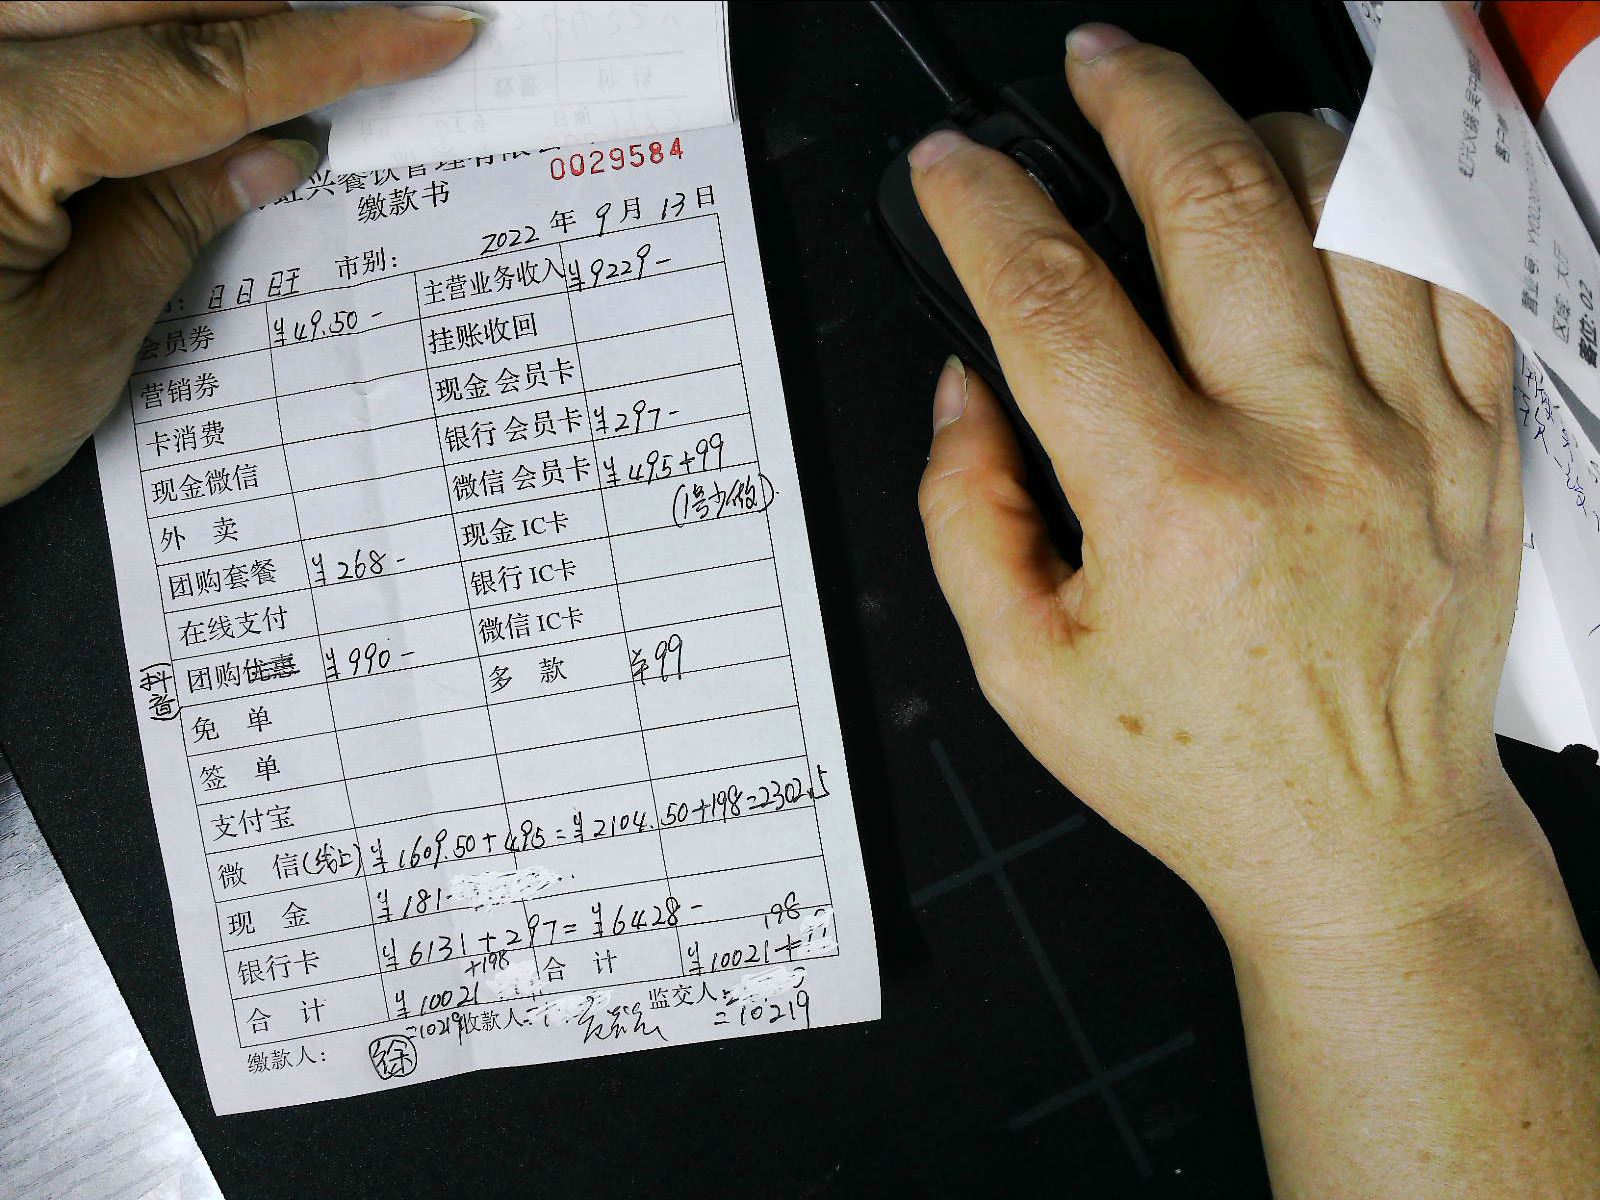 0029584
兴餐饮管理有限公
缴款书
2022年9月13日
日日旺 市别:
会员券 ¥49.50- 主营业务收入 ¥9229-
营销券 挂账收回
卡消费 现金会员卡
现金微信 银行会员卡 ¥297-
外 卖 微信会员卡 ¥495+99
(1号少做)
团购套餐 ¥268- 现金IC卡
在线支付 银行IC卡
(抖音) 团购优惠 ¥990- 微信IC卡
免 单 多 款 ¥99
签 单
支付宝
微 信(线上) ¥1609.50+495=¥2104.50+198=2302.5
现 金 ¥181-
银行卡 ¥6131+297=¥6428-
合 计 ¥10021 +198 =10219 合 计 ¥10021+198 =10219
缴款人: 徐 收款人: 监交人:
营业号
区域: 大厅
客位: 02